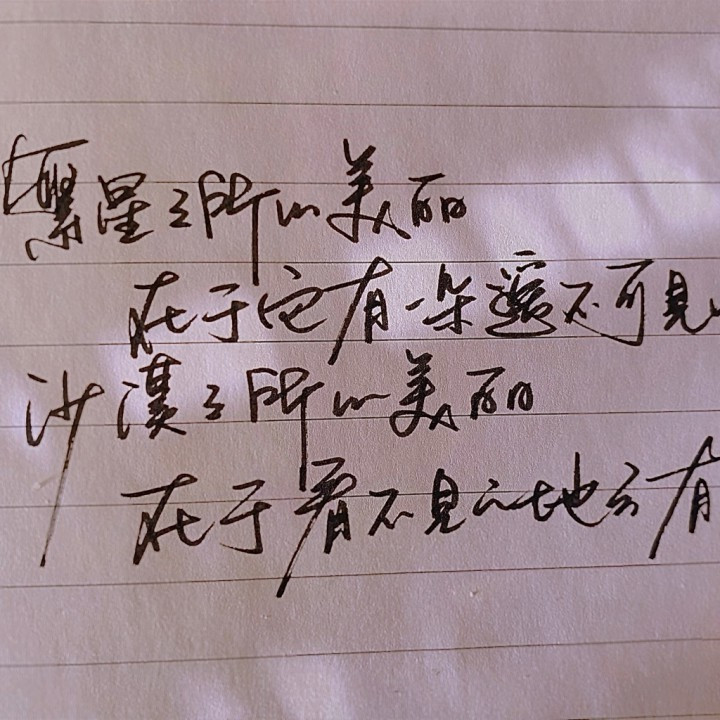 繁星之所以美丽
在于它有一朵遥不可见
沙漠之所以美丽
在于看不见的地方有